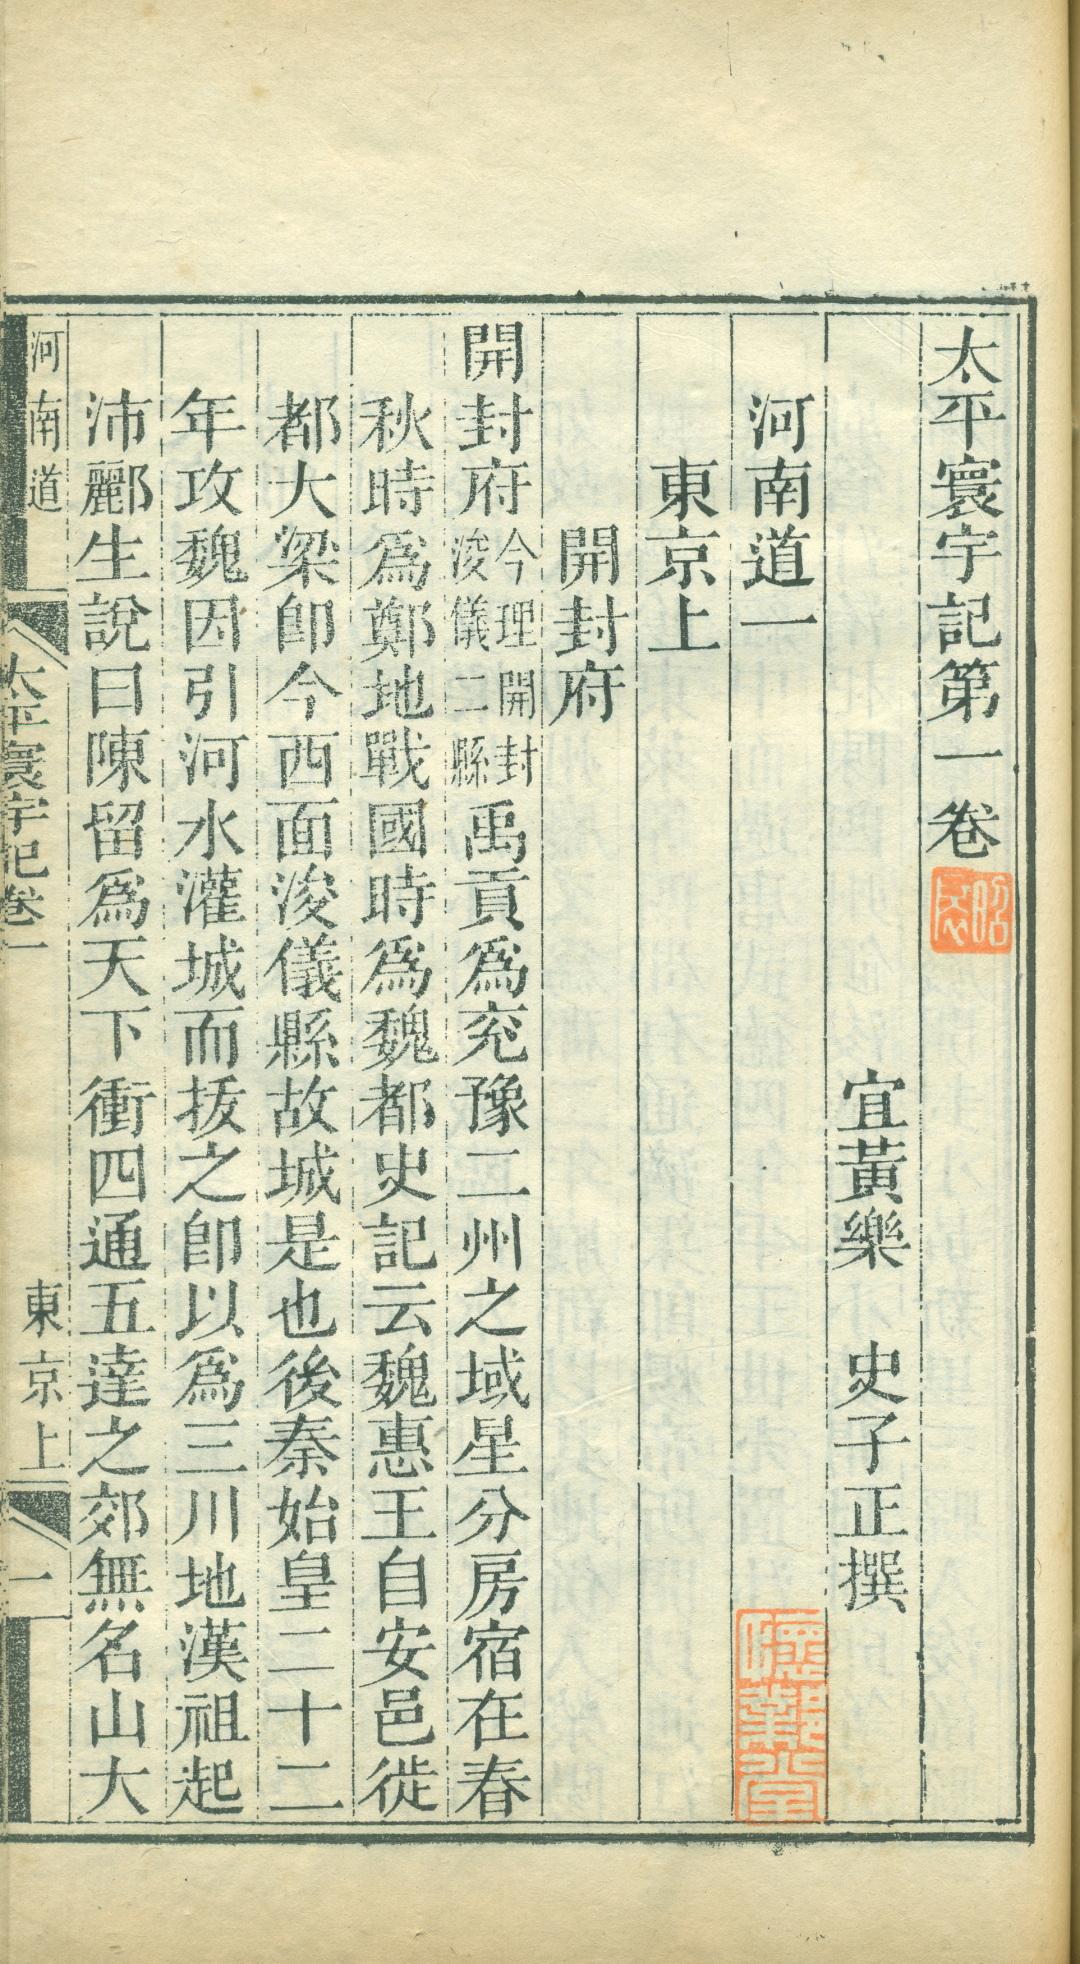 太平寰宇記第一卷
宜黃樂　史子正撰
河南道一
東京上
開封府
開封府今理開封浚儀二縣禹貢爲兖豫二州之域星分房宿在春
秋時爲鄭地戰國時爲魏都史記云魏惠王自安邑徙
都大梁卽今西面浚儀縣故城是也後秦始皇二十二
年攻魏因引河水灌城而拔之卽以爲三川地漢祖起
沛酈生說曰陳留爲天下衝四通五達之郊無名山大
河南道
太平寰宇記卷一
東京上
一